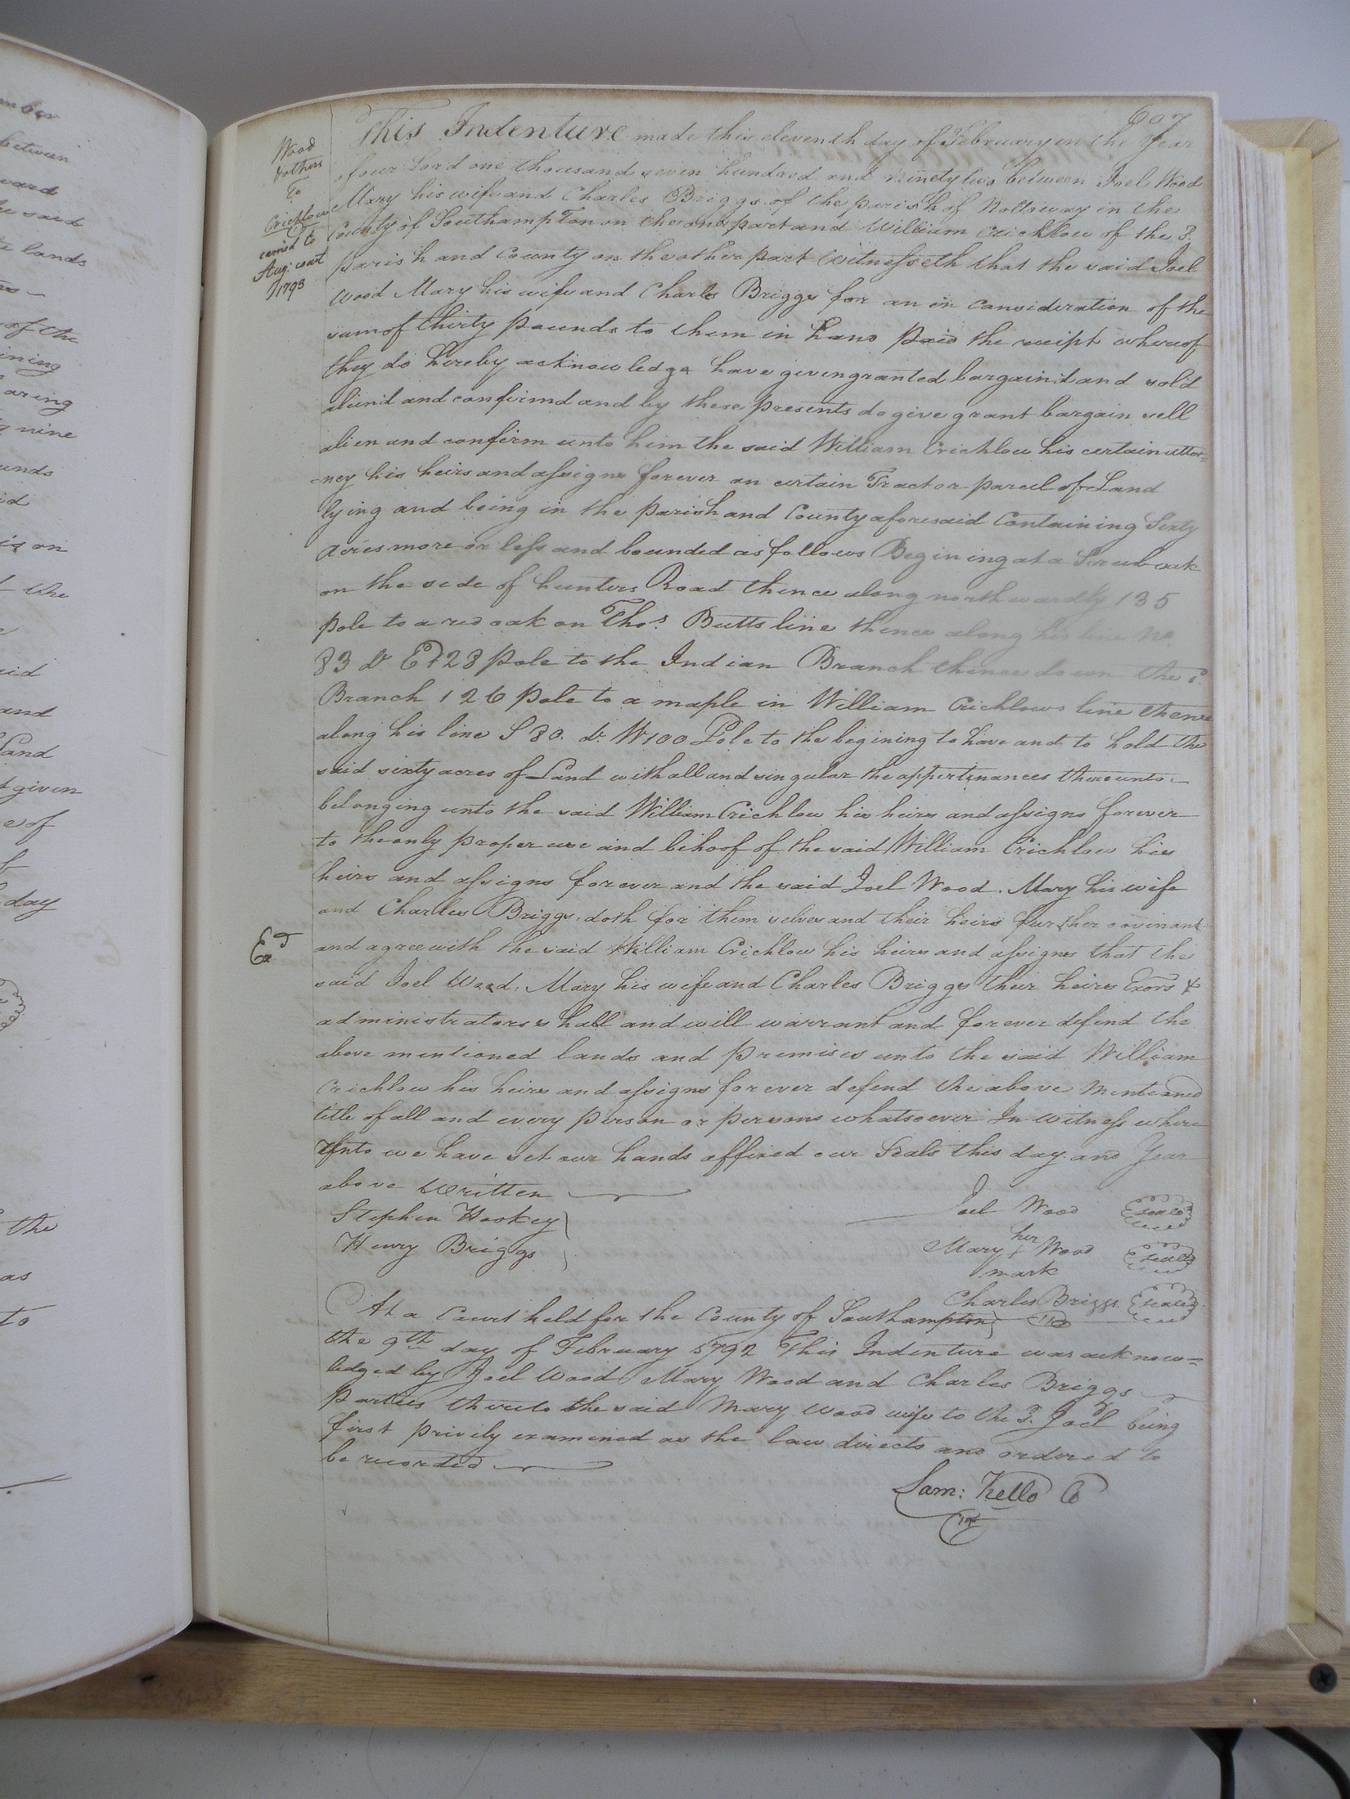 607
Wood
& others
To
Crichlow
exmd to
Aug: court
1793
Exd
This Indenture made this eleventh day of February in the Year
of our Lord one thousand seven hundred and ninety two between Joel Wood
Mary his wife and Charles Briggs of the parish of Nottoway in the
County of Southampton on the one part and William Crichlow of the S.
parish and County on the other part Witnesseth that the said Joel
Wood Mary his wife and Charles Briggs for an in consideration of the
sum of thirty pounds to them in hand paid the receipt whereof
they do hereby acknowledge have given granted bargaind and sold
aliend and confirmd and by these presents do give grant bargain sell
alien and confirm unto him the said William Crichlow his certain attor=
=ney his heirs and assigns forever an certain Tract or parcel of Land
lying and being in the parish and County aforesaid Containing Sixty
Acres more or less and bounded as follows Begining at a Scrub oak
on the side of hunters Road thence along northwardly 135
pole to a red oak on Thos. Butts line thence along his line No
83 d. Et 28 pole to the Indian Branch thence down the s.
Branch 126 pole to a maple in William Crichlows line thence
along his line S 80. d. W 100 Pole to the begining to have and to hold the
said sixty acres of Land with all and singular the appertinances thereunto
belonging unto the said William Crichlow his heirs and assigns forever
to the only proper use and behoof of the said William Crichlow his
heirs and assigns forever and the said Joel Wood. Mary his wife
and Charles Briggs, doth for them selves and their heirs further covinant
and agree with the said William Crichlow his heirs and assigns that the
said Joel Wood, Mary his wife and Charles Briggs their heirs Exors &
administrators shall and will warrant and forever defend the
above mentioned lands and premises unto the said William
Crichlow his heirs and assigns forever defend the above mentioned
title of all and every person or persons whatsoever In witness where
unto we have set our hands affixed our Seals this day and Year
above written
Stephen Hookey
Henry Briggs
Joel Wood seald
her
Mary + Wood seald
mark
Charles Briggs seald
At a Court held for the County of Southampton
the 9th day of February 1792 This Indenture was acknow=
ledged by Joel Wood Mary Wood and Charles Briggs
Parties thereto the said Mary Wood wife to the S. Joel being
first privily examined as the law directs and ordered to
be recorded
Sam: Kello C